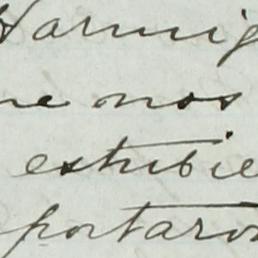 Harmig
ne nos
estubie
portaron